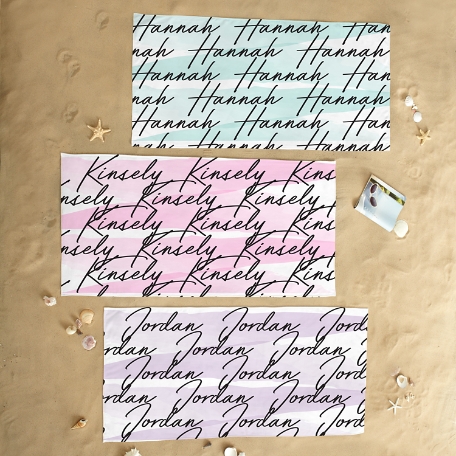 Hannah Hannah Han
nnah Hannah Hannah
Hannah Hannah Han
nnah Hannah Hannah
Hannah Hannah Han
Kinsely Kinsely Kins
nsely Kinsely Kinsely
Kinsely Kinsely Kins
nsely Kinsely Kinsely
Kinsely Kinsely Kins
Jordan Jordan Jord
ordan Jordan Jordan
Jordan Jordan Jord
ordan Jordan Jordan
Jordan Jordan Jord